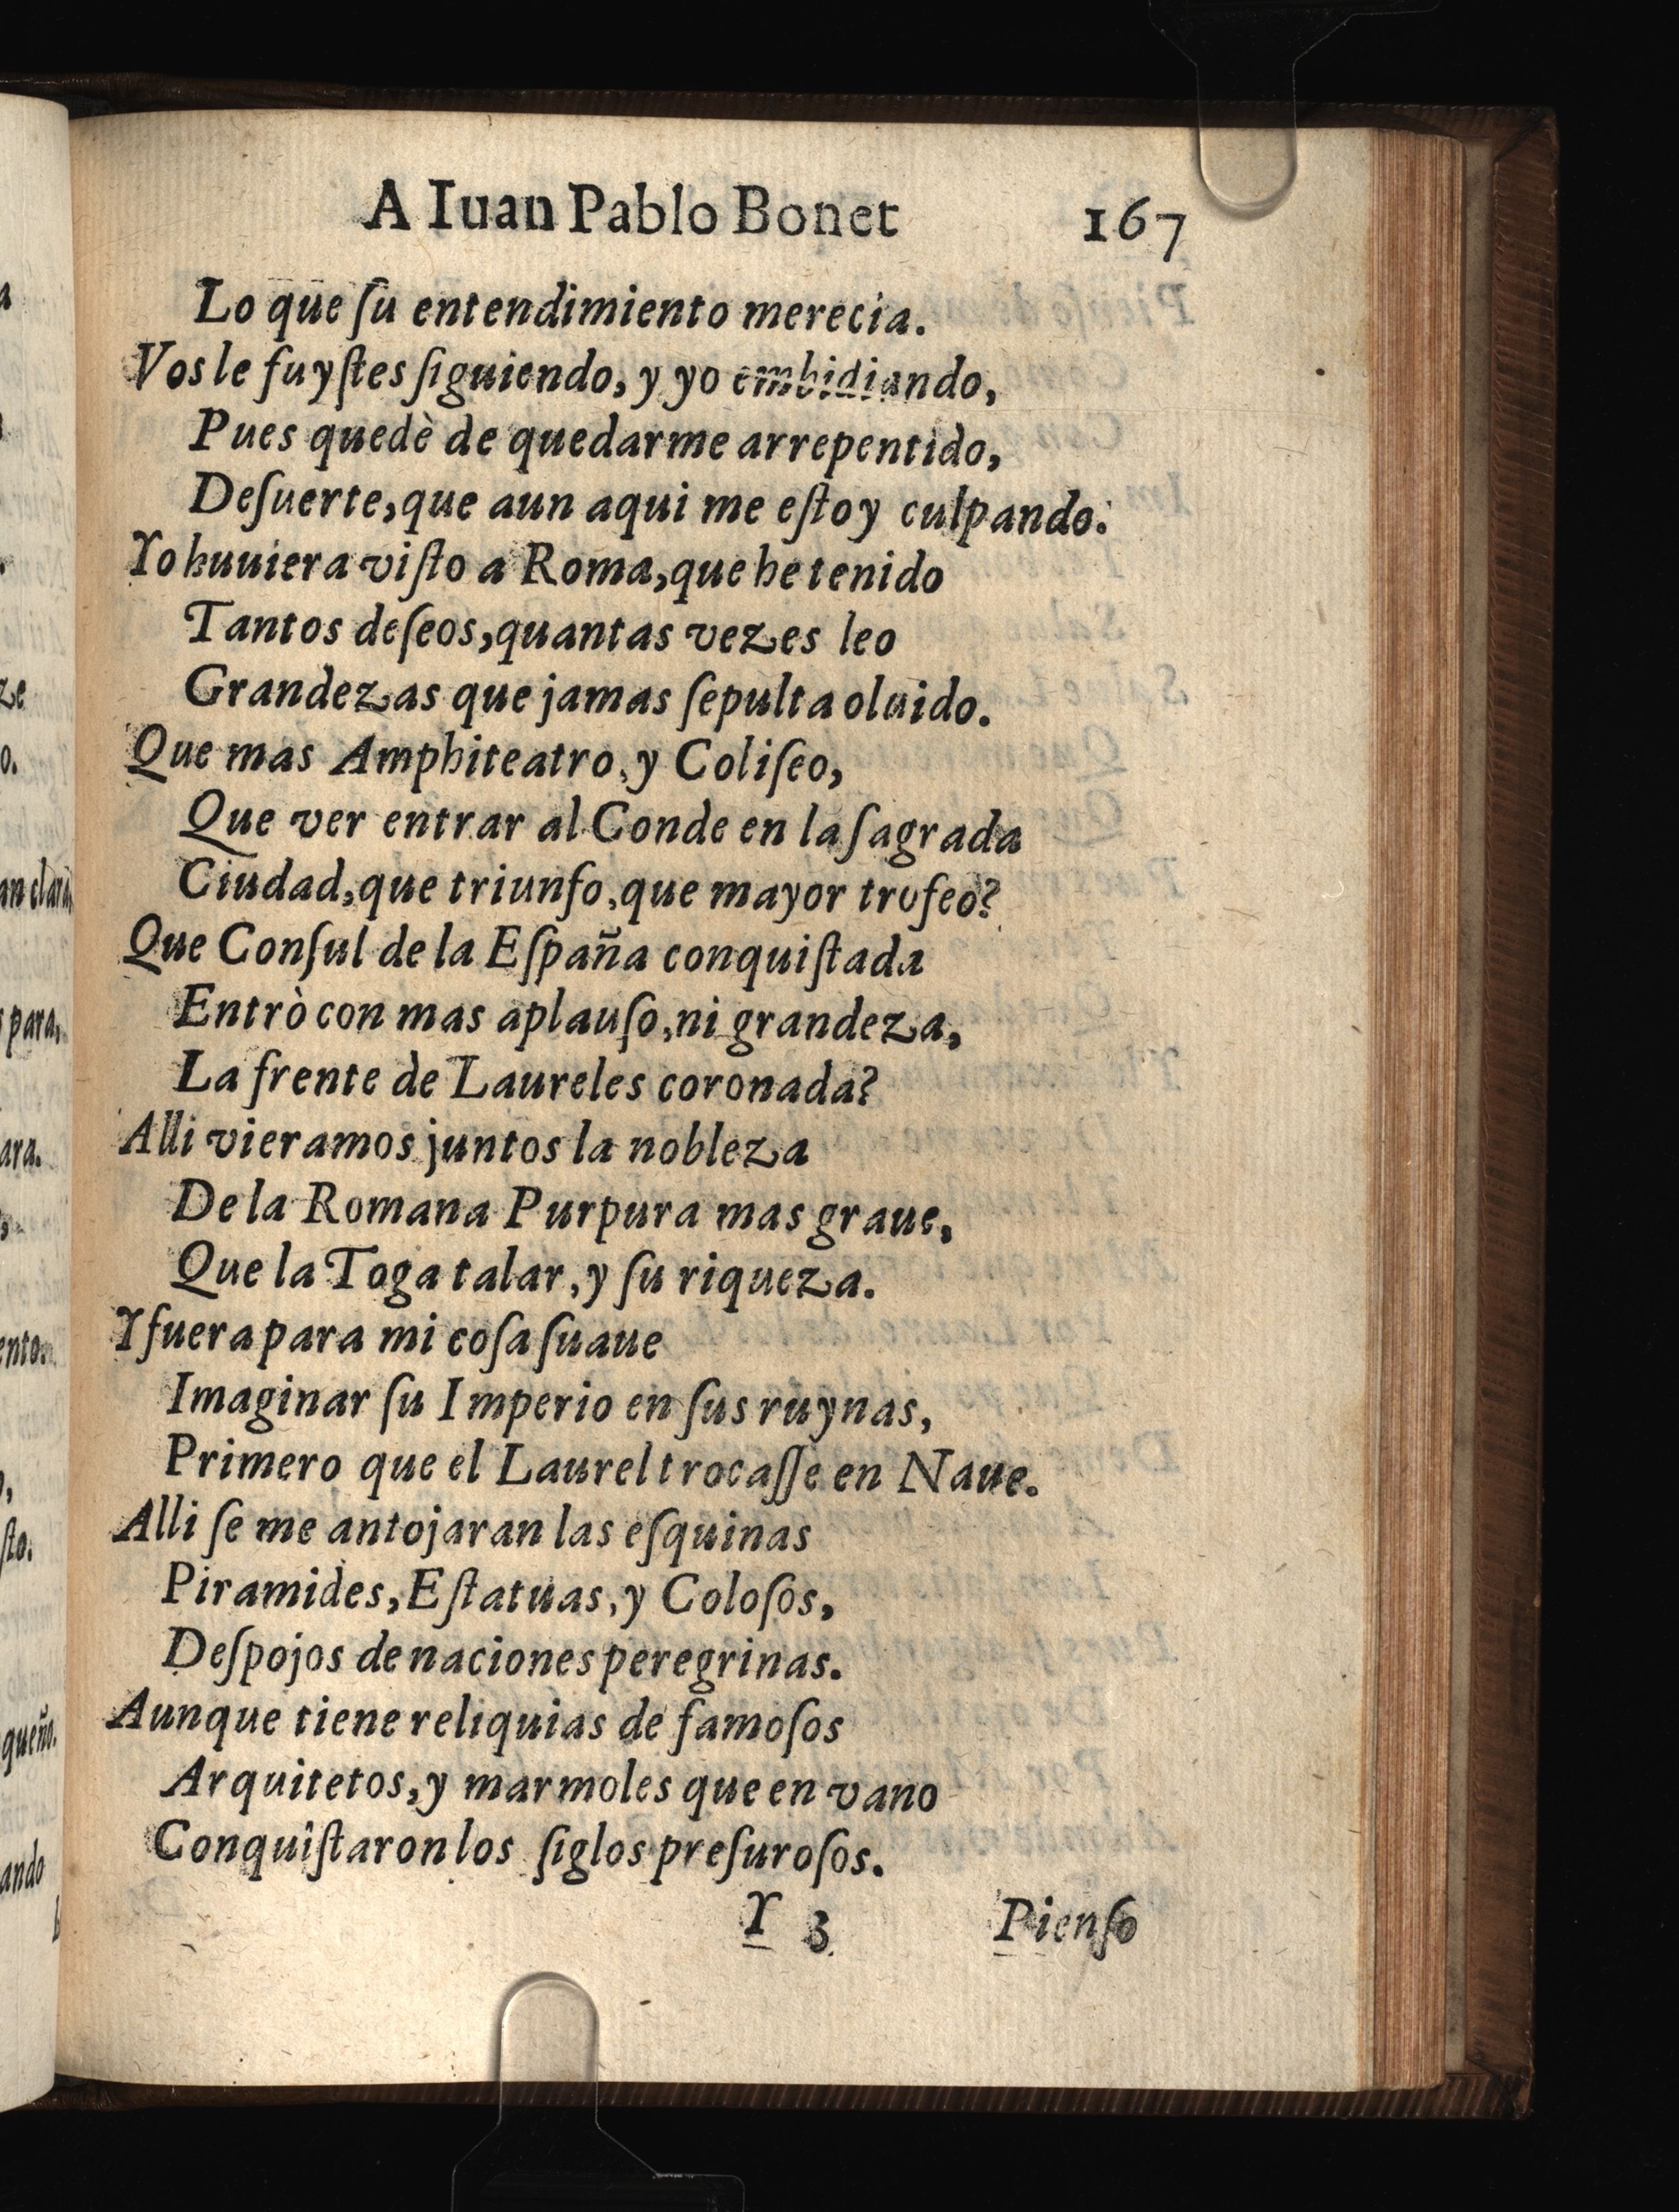 A Iuan Pablo Bonet 167
Lo que ſu entendimiento merecia.
Vos le fuyſtes ſiguiendo, y yo embidiando,
Pues quedè de quedarme arrepentido,
Deſuerte, que aun aqui me eſtoy culpando.
Yo huuiera viſto a Roma, que he tenido
Tantos deſeos, quantas vezes leo
Grandezas que jamas ſepulta oluido.
Que mas Amphiteatro, y Coliſeo,
Que ver entrar al Conde en la ſagrada
Ciudad, que triunfo, que mayor trofeo?
Que Conſul de la Eſpaña conquiſtada
Entrò con mas aplauſo, ni grandeza,
La frente de Laureles coronada?
Alli vieramos juntos la nobleza
De la Romana Purpura mas graue,
Que la Toga talar, y ſu riqueza.
Y fuera para mi coſa ſuaue
Imaginar ſu Imperio en ſus ruynas,
Primero que el Laurel trocaſſe en Naue.
Alli ſe me antojaran las eſquinas
Piramides, Eſtatuas, y Coloſos,
Deſpojos de naciones peregrinas.
Aunque tiene reliquias de famoſos
Arquitetos, y marmoles que en vano
Conquiſtaron los ſiglos preſuroſos.
Y 3 Pienſo